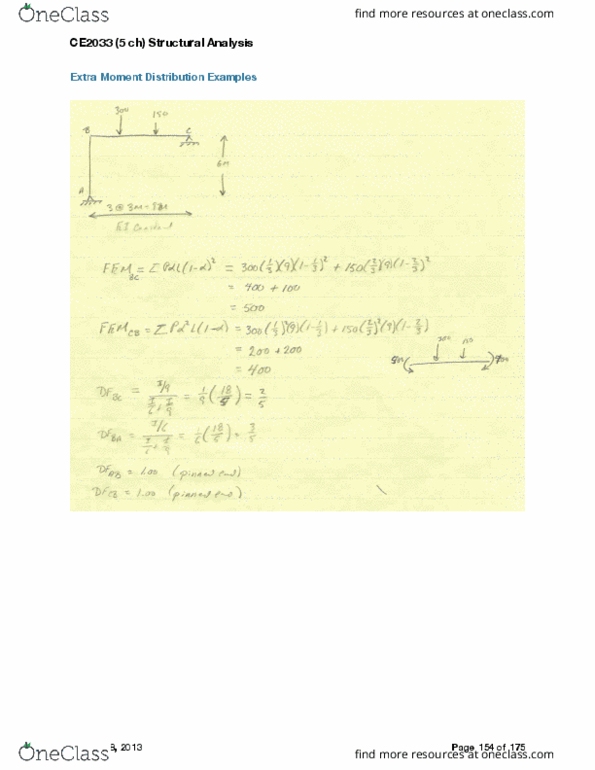 OneClass
find more resources at oneclass.com
CE2033 (5 ch) Structural Analysis
Extra Moment Distribution Examples
300
150
B
C
6m
A
3 @ 3m =
EI Constant
FEM_BC = Σ Pαl(1-α)² = 300(1/3)(9)(1-1/3)² + 150(2/3)(9)(1-2/3)²
= 400 + 100
= 500
FEM_CB = Σ Pα²l(1-α) = 300(1/3)²(9)(1-1/3) + 150(2/3)²(9)(1-2/3)
= 200 + 200
= 400
DF_BC = (I/9)/(I/6 + I/9) = 1/9 (18/5) = 2/5
DF_BA = (I/6)/(I/6 + I/9) = 1/6 (18/5) = 3/5
DF_AB = 1.00 (pinned end)
DF_CB = 1.00 (pinned end)
OneClass
, 2013
Page 154 of 175
find more resources at oneclass.com